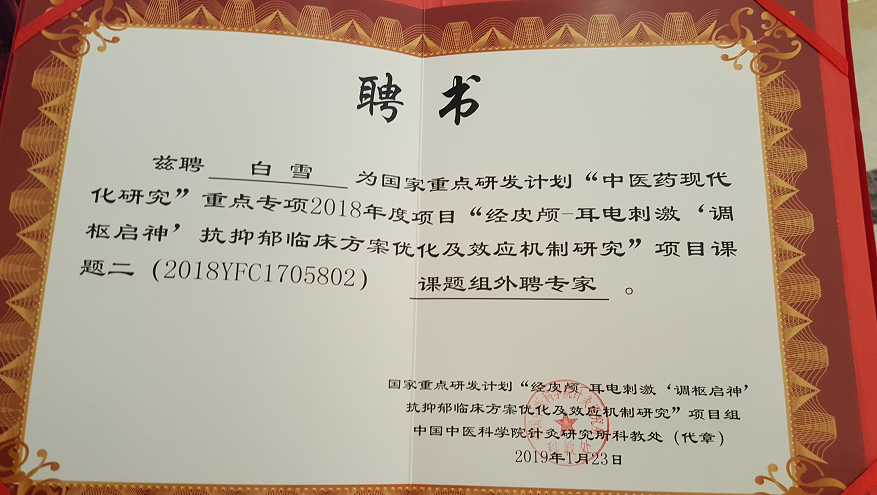 聘书
兹聘 白雪 为国家重点研发计划“中医药现代
化研究”重点专项2018年度项目“经皮颅-耳电刺激‘调
枢启神’抗抑郁临床方案优化及效应机制研究”项目课
题二（2018YFC1705802） 课题组外聘专家 。
国家重点研发计划“经皮颅-耳电刺激‘调枢启神’
抗抑郁临床方案优化及效应机制研究”项目组
中国中医科学院针灸研究所科教处（代章）
2019年1月23日
科教处